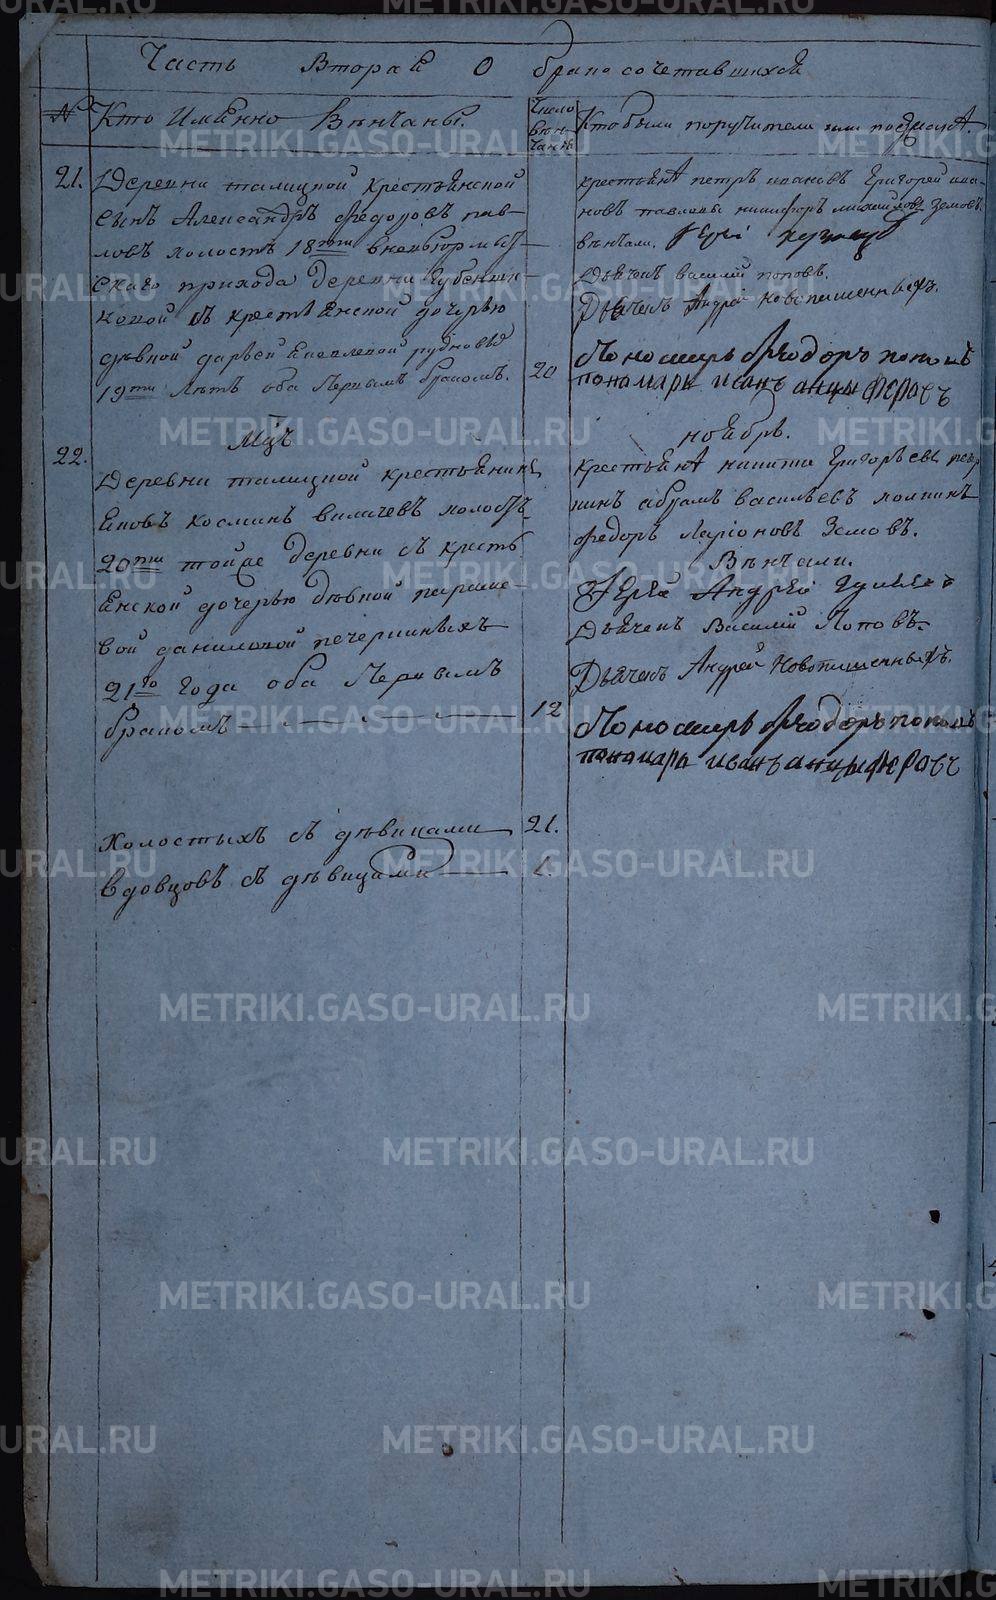 Часть Вторая О бракосочетавшихся
№
Кто Имянно Вѣнчаны.
Число
вѣн-
чанія
Кто были поручители или поѣзжаня.
21.
Деревни талицкой крестьянской
сынъ Александръ федоровъ пав-
ловъ холостъ 18ти
скаго прихода деревни
съ крестьянской дочерью
дѣвкой дарьей Яковлевой
19ти лѣтъ оба первымъ бракомъ.
20
крестьяня петръ ивановъ Григорей ива-
новъ павловы никифоръ михайловъ Земовъ.
вѣнчали.
Дьячекъ василей поповъ.
Дьячекъ Андрей новопашенныхъ.
Пономарь Феодоръ поповъ
пономарь иванъ анцыферовъ
Мцъ ноябрь.
22.
Деревни талицкой крестьянинъ
Яковъ козминъ холостъ
20ти тойже деревни съ кресть
янской дочерью дѣвкой параске-
вой даниловой печеркиныхъ
21го года оба Первымъ
бракомъ
12
крестьяня никита Григорьевъ
абрамъ васильевъ
федоръ Ларіоновъ Земовъ.
Вѣнчали.
Іерей Андрей
Дьячекъ Василей Поповъ.
Дьячекъ Андрей Новопашенныхъ.
Пономарь Феодоръ поповъ
пономарь иванъ анцыферовъ
холостыхъ съ дѣвицами 21.
вдовцовъ съ дѣвицами 1.
METRIKI.GASO-URAL.RU